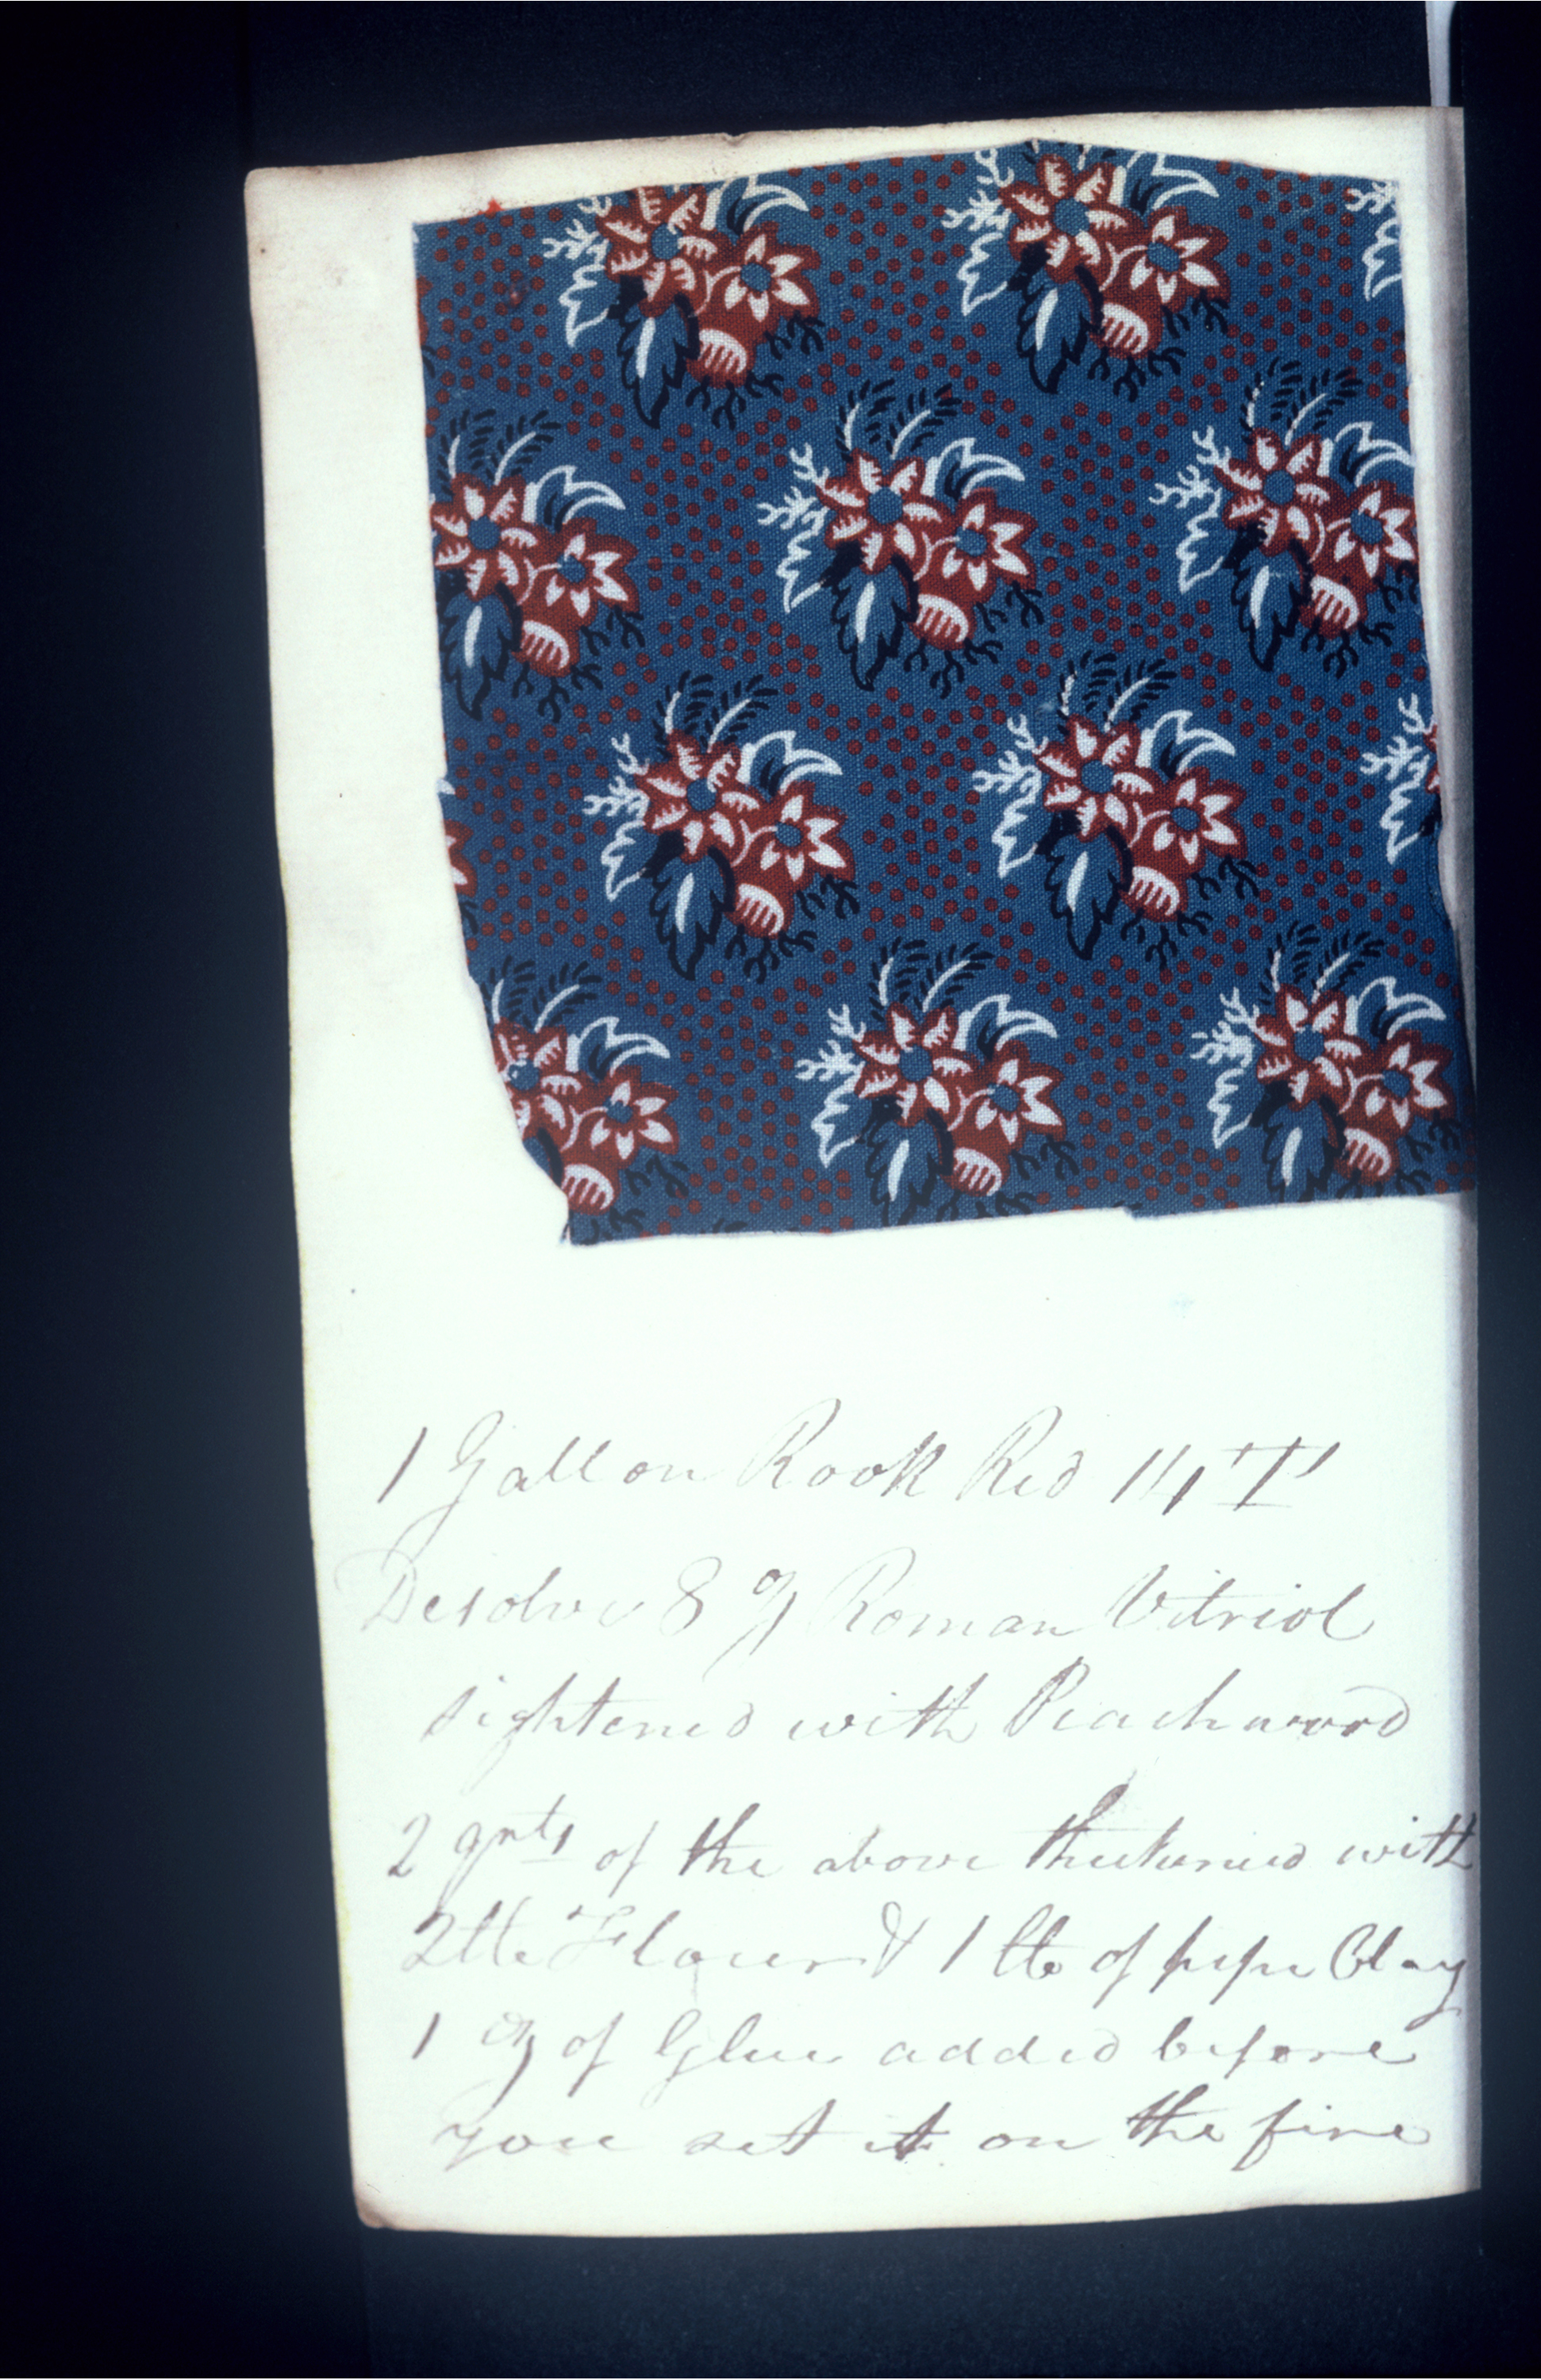 1 Gallon Rook Red 14 'T'
Desolve 8 oz Roman Vitriol
sightened with Peachwood
2 qrts of the above thickened with
2 lb Flour & 1 lb of pipe Clay
1 oz of Glue added before
you set it on the fire